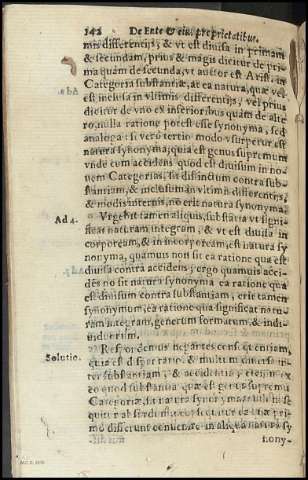 142 De Ente & eius proprietatibus.
mis differentijs; & vt est diuisa in primam
& secundam, prius & magis dicitur de pri-
ma quàm de secunda, vt autor est Arist. in
Categoria substantiæ, at ea natura, quæ vel
est inclusa in vltimis differentijs, vel prius
dicitur de vno ex inferioribus quàm de alte-
ro, nulla ratione potest esse synonyma, sed
analoga: si verò tertio modo vsurpetur est
natura synonyma, quia est genus supremum
vnde cum accidens quod est diuisum in no-
uem Categorias, sit distinctum contra sub-
stantiam, & inclusum in vltimis differentijs,
& modis internis, no erit natura synonyma.
Ad 4.
Vrgebit tamen aliquis, substātia vt signi-
ficat naturam integram, & vt est diuisa in
corpoream, & in incorpoream, est natura sy
nonyma, quamuis non sit ea ratione qua est
diuisa contra accidens; ergo quamuis acci-
dēs no sit natura synonyma ea ratione qua
est diuisum contra substantiam, erit tamen
synonymum, ea ratione qua significat natu-
ram integram, generum formarum, & indi-
uiduorum.
Solutio.
Respondemus negantes consequentiam,
quia est dispar ratio, & multum diuersa in-
ter substantiam, & accidentia; etenim ex
eo quod substantia quæ est genus supremū
Categoriæ, sit natura syncryma
differt
natura sy
nony-